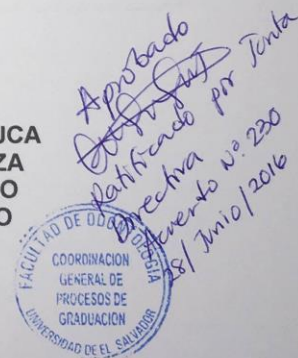 UCA
ZA
O
O
Aprobado
Ratificado por Junta
Directiva
Acuerdo Nº 230
28/Junio/2016
FACULTAD DE ODONTOLOGIA
COORDINACION
GENERAL DE
PROCESOS DE
GRADUACION
UNIVERSIDAD DE EL SALVADOR